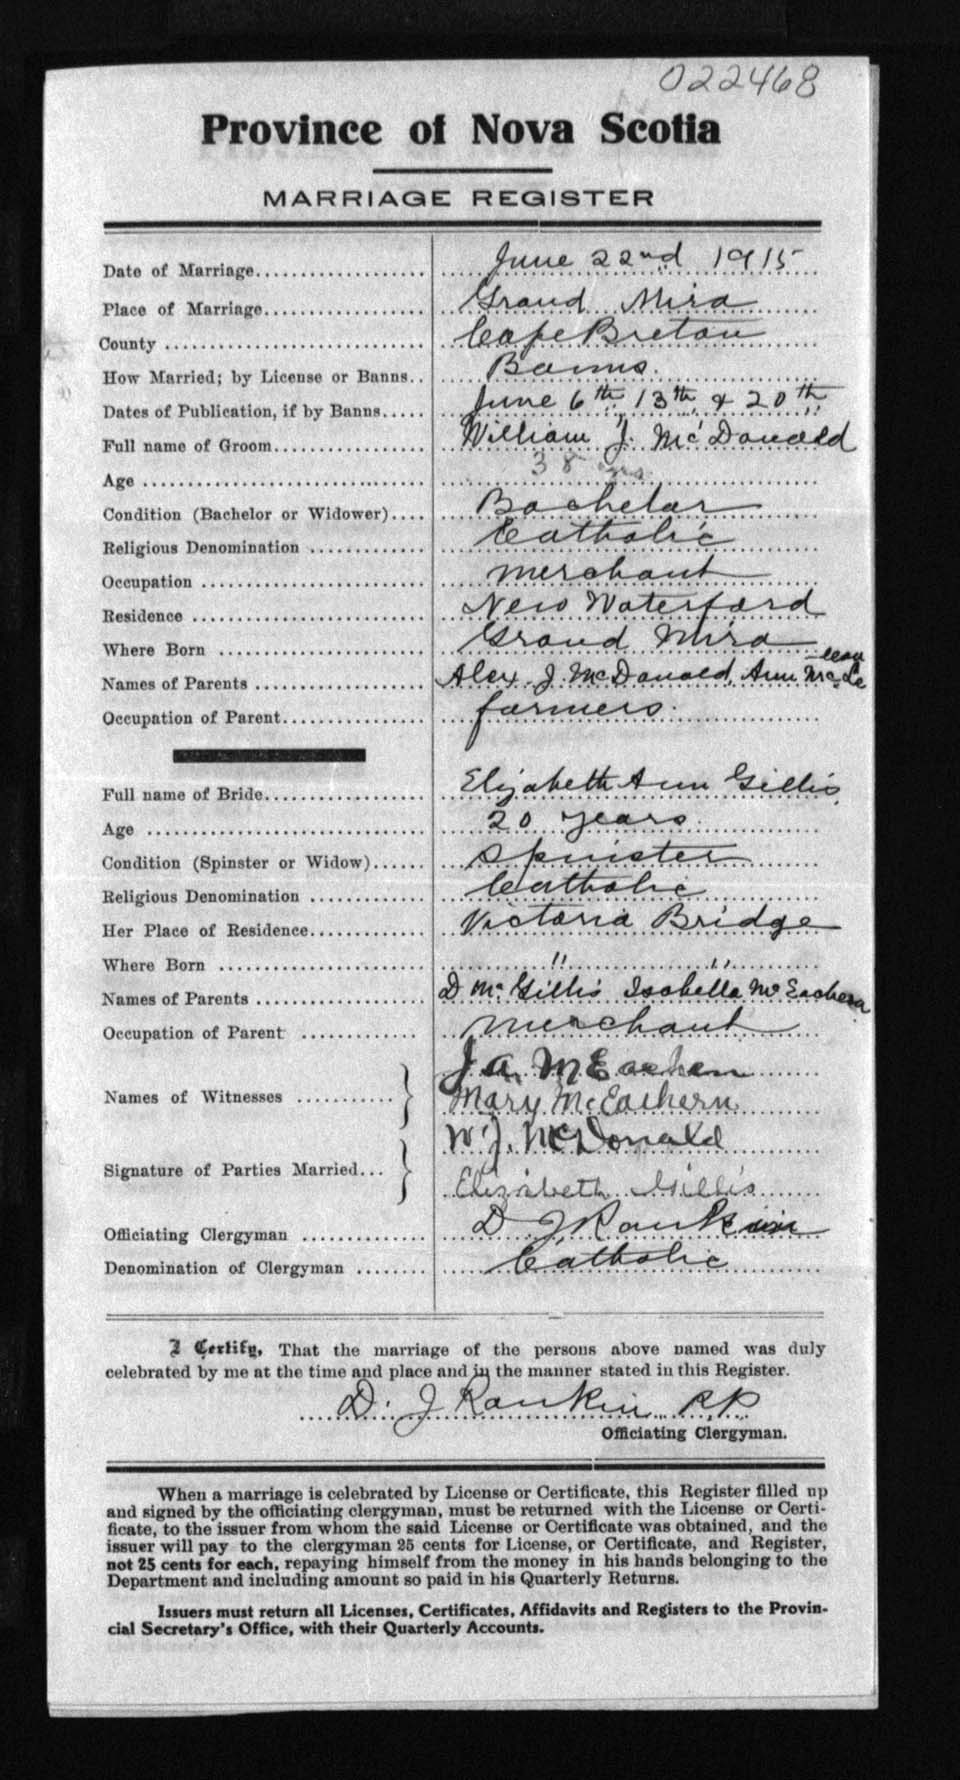 022468
Province of Nova Scotia
MARRIAGE REGISTER
Date of Marriage.................. June 22nd 1915
Place of Marriage.................. Grand Mira
County ............................ Cape Breton
How Married; by License or Banns.. Banns.
Dates of Publication, if by Banns..... June 6th, 13th, & 20th
Full name of Groom.................. William J. McDonald
Age ............................... 38 yrs
Condition (Bachelor or Widower).... Bachelor
Religious Denomination ............ Catholic
Occupation ........................ merchant
Residence ......................... New Waterford
Where Born ........................ Grand Mira
Names of Parents .................. Alex J. McDonald, Ann McLellan
Occupation of Parent............... farmers.
Full name of Bride.................. Elizabeth Ann Gillis
Age ............................... 20 years
Condition (Spinster or Widow)...... Spinster
Religious Denomination ............ Catholic
Her Place of Residence............. Victoria Bridge
Where Born ........................ " "
Names of Parents .................. D Mc Gillis Isabella McEachern
Occupation of Parent .............. merchant
Names of Witnesses ........... } J A McEachern
Mary McEachern
Signature of Parties Married... } W. J. McDonald
Elizabeth Gillis
Officiating Clergyman .............. D J Rankin
Denomination of Clergyman ........ Catholic
I Certify, That the marriage of the persons above named was duly
celebrated by me at the time and place and in the manner stated in this Register.
D. J Rankin P.P.
Officiating Clergyman.
When a marriage is celebrated by License or Certificate, this Register filled up
and signed by the officiating clergyman, must be returned with the License or Certi-
ficate, to the issuer from whom the said License or Certificate was obtained, and the
issuer will pay to the clergyman 25 cents for License, or Certificate, and Register,
not 25 cents for each, repaying himself from the money in his hands belonging to the
Department and including amount so paid in his Quarterly Returns.
Issuers must return all Licenses, Certificates, Affidavits and Registers to the Provin-
cial Secretary's Office, with their Quarterly Accounts.